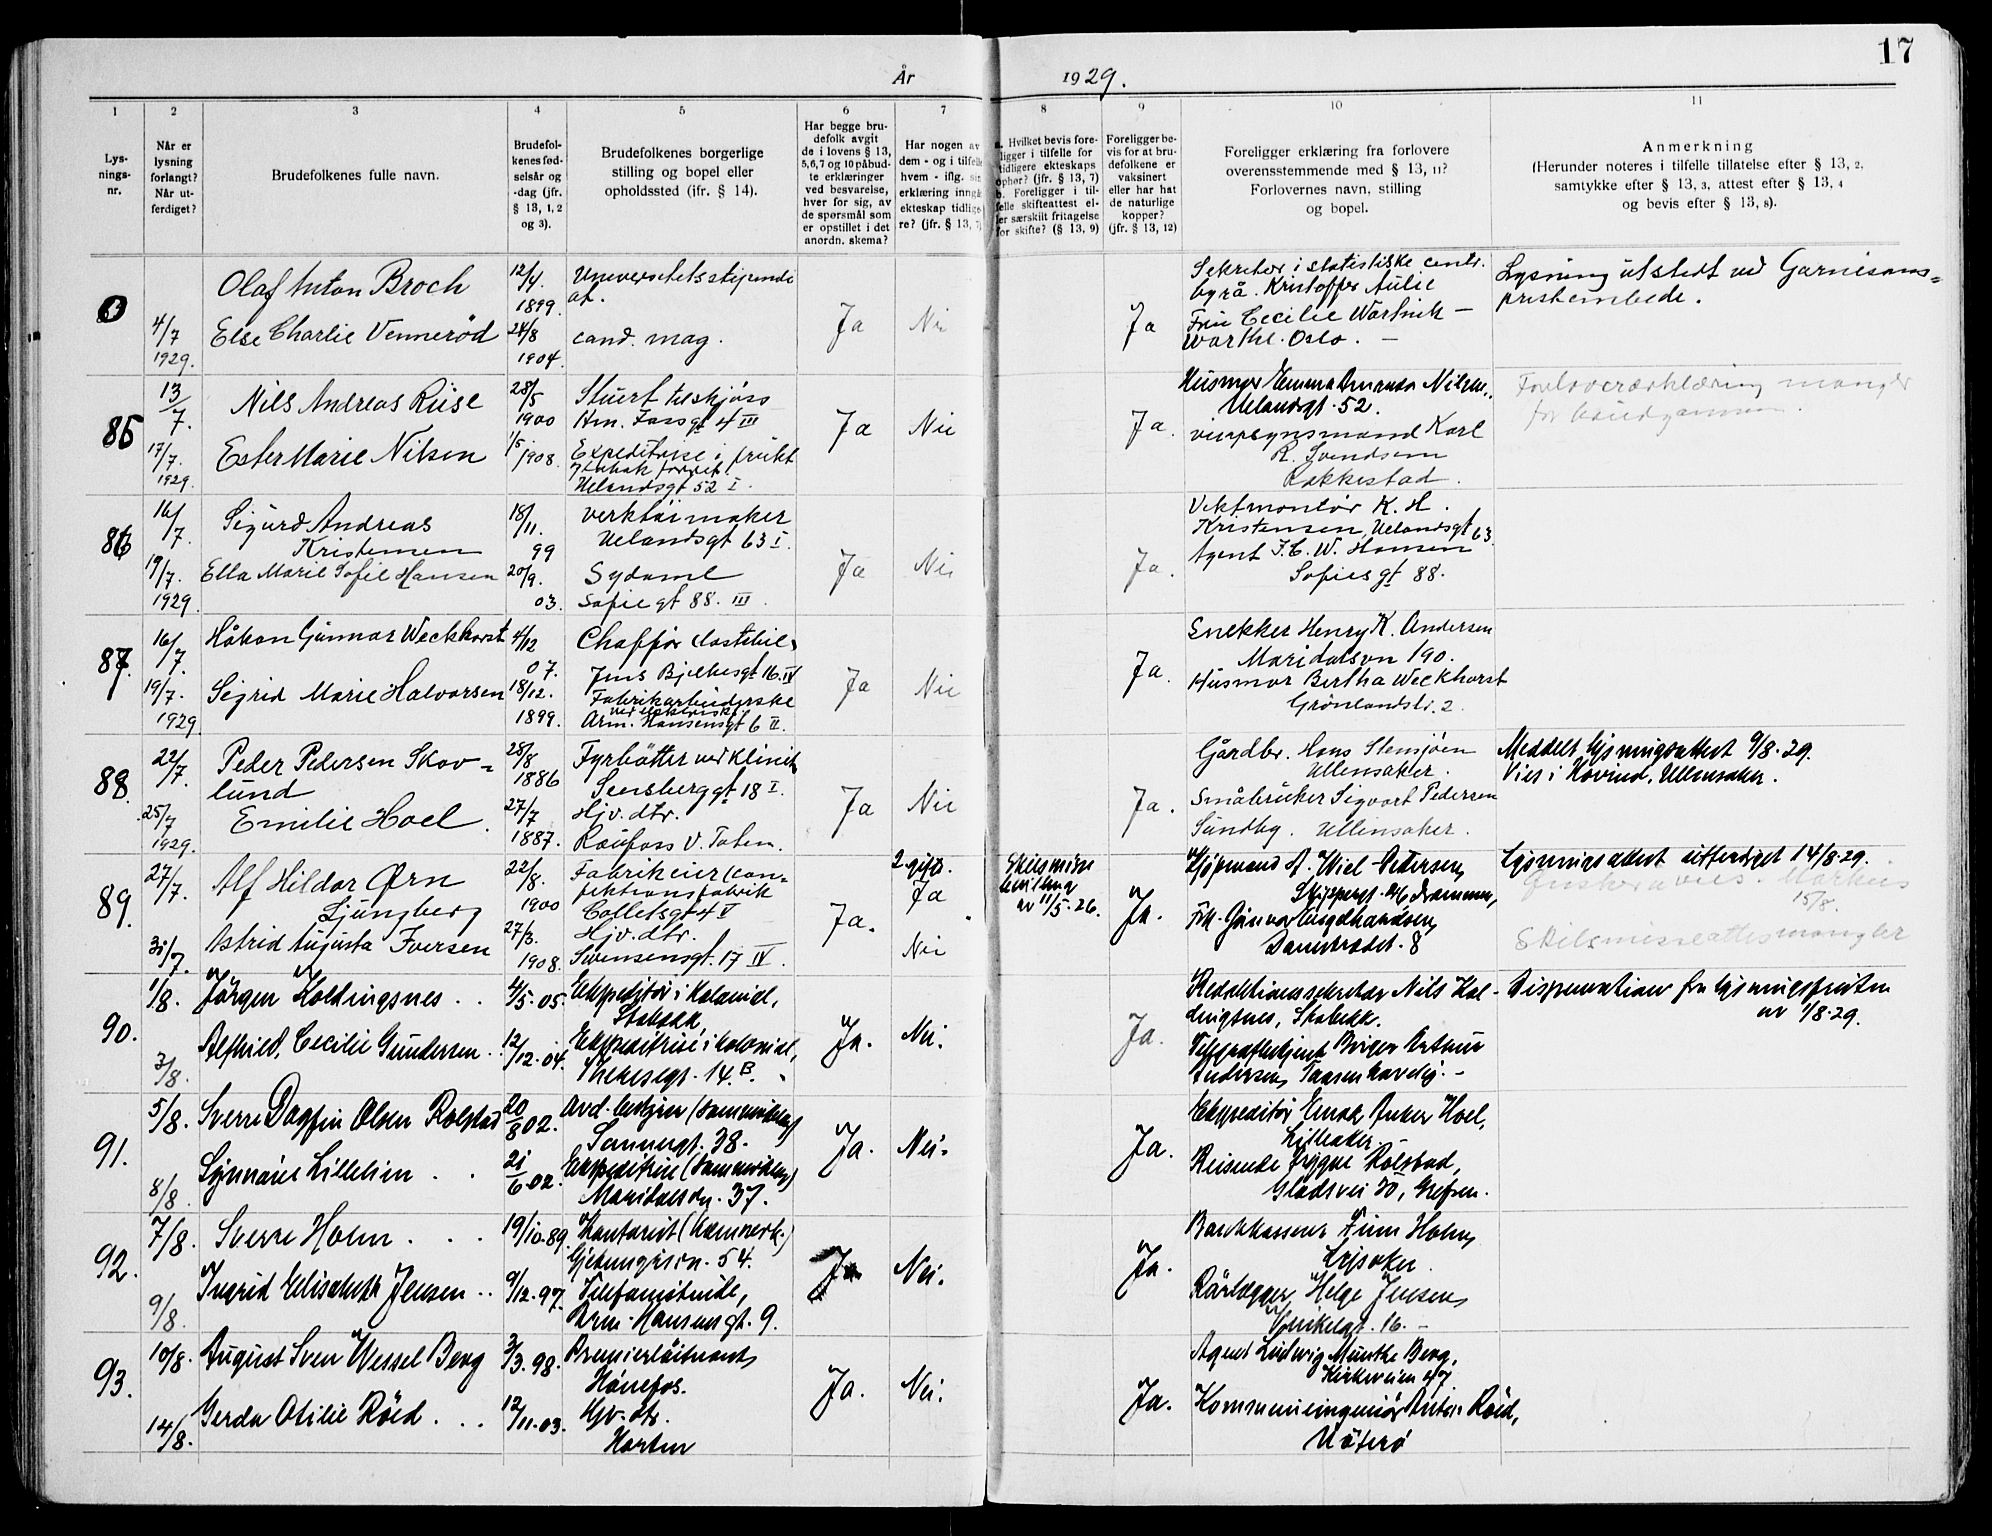 År 1929.
17
1
2
3
4
5
6
7
8
9
10
11
Lys-
nings-
nr.
Når er
lysning
forlangt?
Når ut-
ferdiget?
Brudefolkenes fulle navn.
Brudefol-
kenes fød-
selsår og
-dag (jfr.
§ 13, 1, 2
og 3).
Brudefolkenes borgerlige
stilling og bopel eller
opholdssted (jfr. § 14).
Har begge bru-
defolk avgit
de i lovens § 13,
5,6,7 og 10 påbud-
te erklæringer
ved besvarelse,
hver for sig, av
de spørsmål som
er opstillet i det
anordn. skema?
Har nogen av
dem - og i tilfelle
hvem - iflg. sin
erklæring inngått
ekteskap tidlige-
re? (jfr. § 13, 7)
a. Hvilket bevis fore-
ligger i tilfelle for
tidligere ekteskaps
ophør? (jfr. § 13, 7)
b. Foreligger i til-
felle skifteattest el-
ler særskilt fritagelse
for skifte? (§ 13, 9)
Foreligger be-
vis for at bru-
defolkene er
vaksinert
eller har hat
de naturlige
kopper?
(jfr. § 13, 12)
Foreligger erklæring fra forlovere
overensstemmende med § 13, 11?
Forlovernes navn, stilling
og bopel.
Anmerkning
(Herunder noteres i tilfelle tillatelse efter § 13, 2,
samtykke efter § 13, 3, attest efter § 13, 4
og bevis efter § 13, 8).
4/7
1929.
Olaf Anton Broch
Else Charlie Vennerød
12/4.
1899.
24/8
1904.
Universitetsstipendi
at.
cand. mag.
Ja
Nei
Ja
Sekretær i statistiske centr.
byrå. Kristoffer Aulie
Fru Cecilie
Oslo.
Lysning utstedt ved Garnisons=
prestembede.
85
13/7.
17/7.
1929.
Nils Andreas Riise
Ester Marie Nilsen
28/5
1900
1/5
1908.
Stuert tilskjøss
4 III
Expeditrise i frukt
Uelandsgt 52 I.
Ja
Nei
Ja.
Husmor Emma Amanda Nilsen,
Uelandsgt. 52.
Karl
R. Svendsen
Rakkestad.
Forlovererklæring mangler
for brudgommen.
86
16/7.
19/7.
1929.
Sigurd Andreas
Kristensen
Ella Marie Sofie Hansen
18/11.
99
20/9.
03.
verktøimaker
Uelandsgt 63 I.
Sydame
Sofiegt 88. III.
Ja
Nei
Ja.
Vektmontør K. H.
Kristensen, Uelandsgt 63.
Agent F. C. W. Hansen
Sofiesgt 88.
87.
16/7.
19/7.
1929.
Håkon Gunnar Weckhorst
Sigrid Marie Halvorsen
4/12
07.
18/12.
1899.
Chaffør (lastebil)
Jens Bjelkesgt 16. IV
Fabrikarbeiderske
Arm. Hansensgt 6 II.
Ja
Nei
Ja.
Snekker Henry K. Andersen
Maridalsvn 190.
Husmor Bertha Weckhorst
Grønlandsler. 2.
88.
22/7.
25/7
1929.
Peder Pedersen Skov=
lund
Emilie Hoel.
28/8
1886
27/7
1887.
Fyrbøtter ved klinik
Sensberggt 18 I.
Hjv. dtr.
Raufoss V. Toten.
Ja
Nei
Ja.
Gårdbr. Hans Stensjøen
Ullensaker.
Småbruker Sigvart Pedersen
Sundby. Ullensaker.
Meddelt lysningsattest 9/8-29.
Vies i Hovind, Ullensaker.
89.
27/7.
31/7.
Alf Hildar Ørn
Ljungberg
Astrid Augusta Iversen
22/8.
1900
27/3.
1908.
Fabrikeier (kon=
fektionsfabrik
Colletsgt 4 V
Hjv. dtr.
Svensensgt. 17 IV.
Ja.
2. gift.
Ja
Nei
Skilsmisse
bevilling
av 11/5-26.
Ja.
Kjøpmand A. Wiel-Petersen,
Drammen,
Frk. Gunvor
8
Lysningsattest utferdiget 14/8-29.
Ønsker a vies. Markus
15/8.
Skilsmisseattest mangler
90.
1/8.
3/8.
Jørgen Koldingsnes . .
Alfhild Cecilie Gundersen . .
4/5-05.
12/12-04.
Ekspeditør i kolonial,
Stabekk
Ekspeditrise i kolonial,
Theresegt. 14. B.
Ja.
Nei.
Ja.
Redaktionssekretær Nils Kol-
dingsnes, Stabekk.
Telegrafbetjent Birger Arthur
Andersen,
Dispensation fra lysningsfristen
av 1/8-29.
91.
5/8.
8/8.
Sverre Dagfin Olsen Rolstad
Lillelien . .
20/8 02.
21/6-02.
Sannergt. 38.
Ekspeditrise
Maridalsvn. 37.
Ja.
Nei.
Ja.
Ekspeditør Einar Anker Hoel,
Lilleaker.
Reisende Trygve Rolstad,
Gladsvei 30, Grefsen.
92.
7/8.
9/8.
Sverre Holm . . .
Ingrid Elisabeth Jensen . .
19/10-89.
9/12-97.
Kontorist
54.
Telefonistinde,
Arm. Hansensgt. 9.
Ja
Nei.
Ja.
Bankkasserer Finn Holm,
Lysaker.
Rørlegger Helge Jensen,
Vinkelgt. 16. -
93.
10/8.
14/8.
August Sven Wessel Berg
Gerda Otilie Røed . . .
3/3.98.
12/11-03.
Premierløitnant,
Hønefos.
Hjv. dtr.
Horten
Ja.
Nei.
Ja.
Agent Ludvig Munthe Berg,
Kirkeveien
Kommuneingeniør Anton Røed,
Nøterø